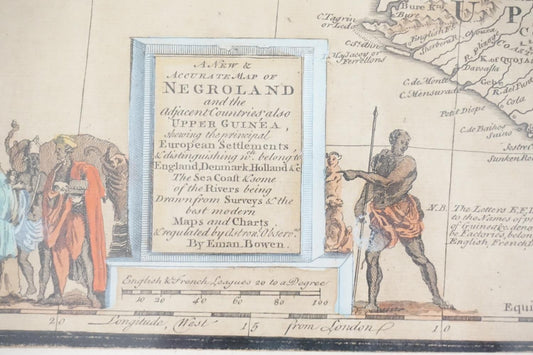 Bure K.
Bure
C. Tagrin
or Ledo
U P
English F.
Sherbro
C. St Ann
Ferrellons
K. of QUOJA
C. de Monte
C. Mensurada
Petit Diepe
A NEW &
ACCURATE MAP OF
NEGROLAND
and the
Adjacent Countries; also
UPPER GUINEA,
shewing the principal
European Settlements
& distinguishing wch. belong to
England, Denmark, Holland &c
The Sea Coast & some
of the Rivers being
Drawn from Surveys & the
best modern
Maps and Charts,
& regulated by Astron. Observns.
By Eman. Bowen.
N.B. The Letters E F
to the Names of
be Factories, belon
English, French
English & French Leagues 20 to a Degree
10 20 40 60 80 100
Equi
20 Longitude West 15 from London 10